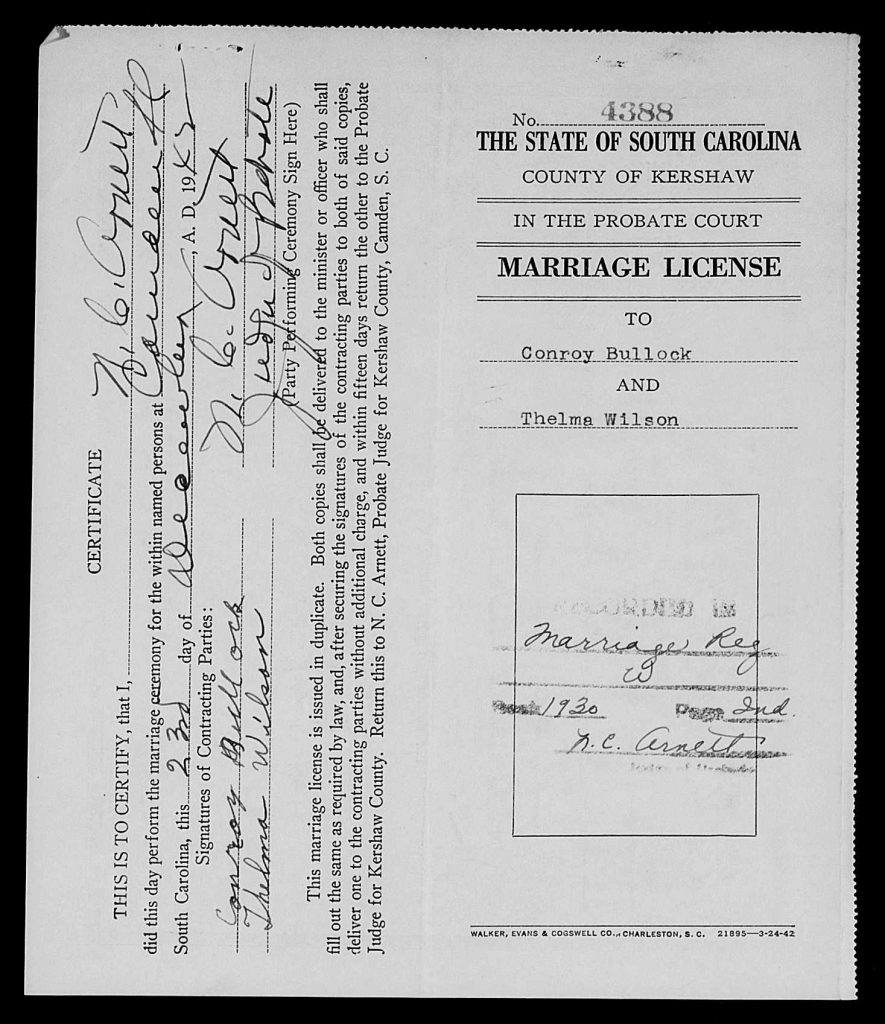 CERTIFICATE
THIS IS TO CERTIFY, that I, N. C. Arnett
did this day perform the marriage ceremony for the within named persons at Camden
South Carolina, this 23rd day of December, A. D. 1942
Signatures of Contracting Parties:
Conroy Bullock N. C. Arnett
Thelma Wilson Judge of Probate
(Party Performing Ceremony Sign Here)
This marriage license is issued in duplicate. Both copies shall be delivered to the minister or officer who shall
fill out the same as required by law, and, after securing the signatures of the contracting parties to both of said copies,
deliver one to the contracting parties without additional charge, and within fifteen days return the other to the Probate
Judge for Kershaw County. Return this to N. C. Arnett, Probate Judge for Kershaw County, Camden, S. C.
No. 4388
THE STATE OF SOUTH CAROLINA
COUNTY OF KERSHAW
IN THE PROBATE COURT
MARRIAGE LICENSE
TO
Conroy Bullock
AND
Thelma Wilson
Marriage Reg
W
1930 Ind.
N. C. Arnett
WALKER, EVANS & COGSWELL CO., CHARLESTON, S. C. 21895—3-24-42